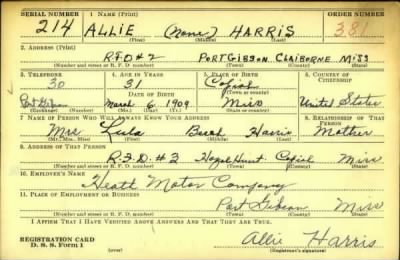 SERIAL NUMBER 1 NAME (Print) ORDER NUMBER
214 ALLIE (None) HARRIS 381
(First) (Middle) (Last)
2 ADDRESS (Print)
R.F.D #2 PORT GIBSON CLAIBORNE MISS
(Number and street or R. F. D. number) (Town) (County) (State)
3 TELEPHONE 4 AGE IN YEARS 5 PLACE OF BIRTH 6 COUNTRY OF CITIZENSHIP
30 31 Copiah
DATE OF BIRTH (Town or county)
Port Gibson March 6, 1909 Miss United States
(Exchange) (Number) (Mo.) (Day) (Yr.) (State or country)
7 NAME OF PERSON WHO WILL ALWAYS KNOW YOUR ADDRESS 8 RELATIONSHIP OF THAT PERSON
Mrs Lula Harris Mother
(Mr., Mrs., Miss) (First) (Middle) (Last)
9 ADDRESS OF THAT PERSON
R.F.D. #3 Copiah Miss
(Number and street or R. F. D. number) (Town) (County) (State)
10 EMPLOYER'S NAME
Heath Motor Company
11 PLACE OF EMPLOYMENT OR BUSINESS
Port Gibson Miss
(Number and street or R. F. D. number) (Town) (County) (State)
I AFFIRM THAT I HAVE VERIFIED ABOVE ANSWERS AND THAT THEY ARE TRUE.
REGISTRATION CARD
D. S. S. Form 1 (over) Allie Harris
(Registrant's signature)